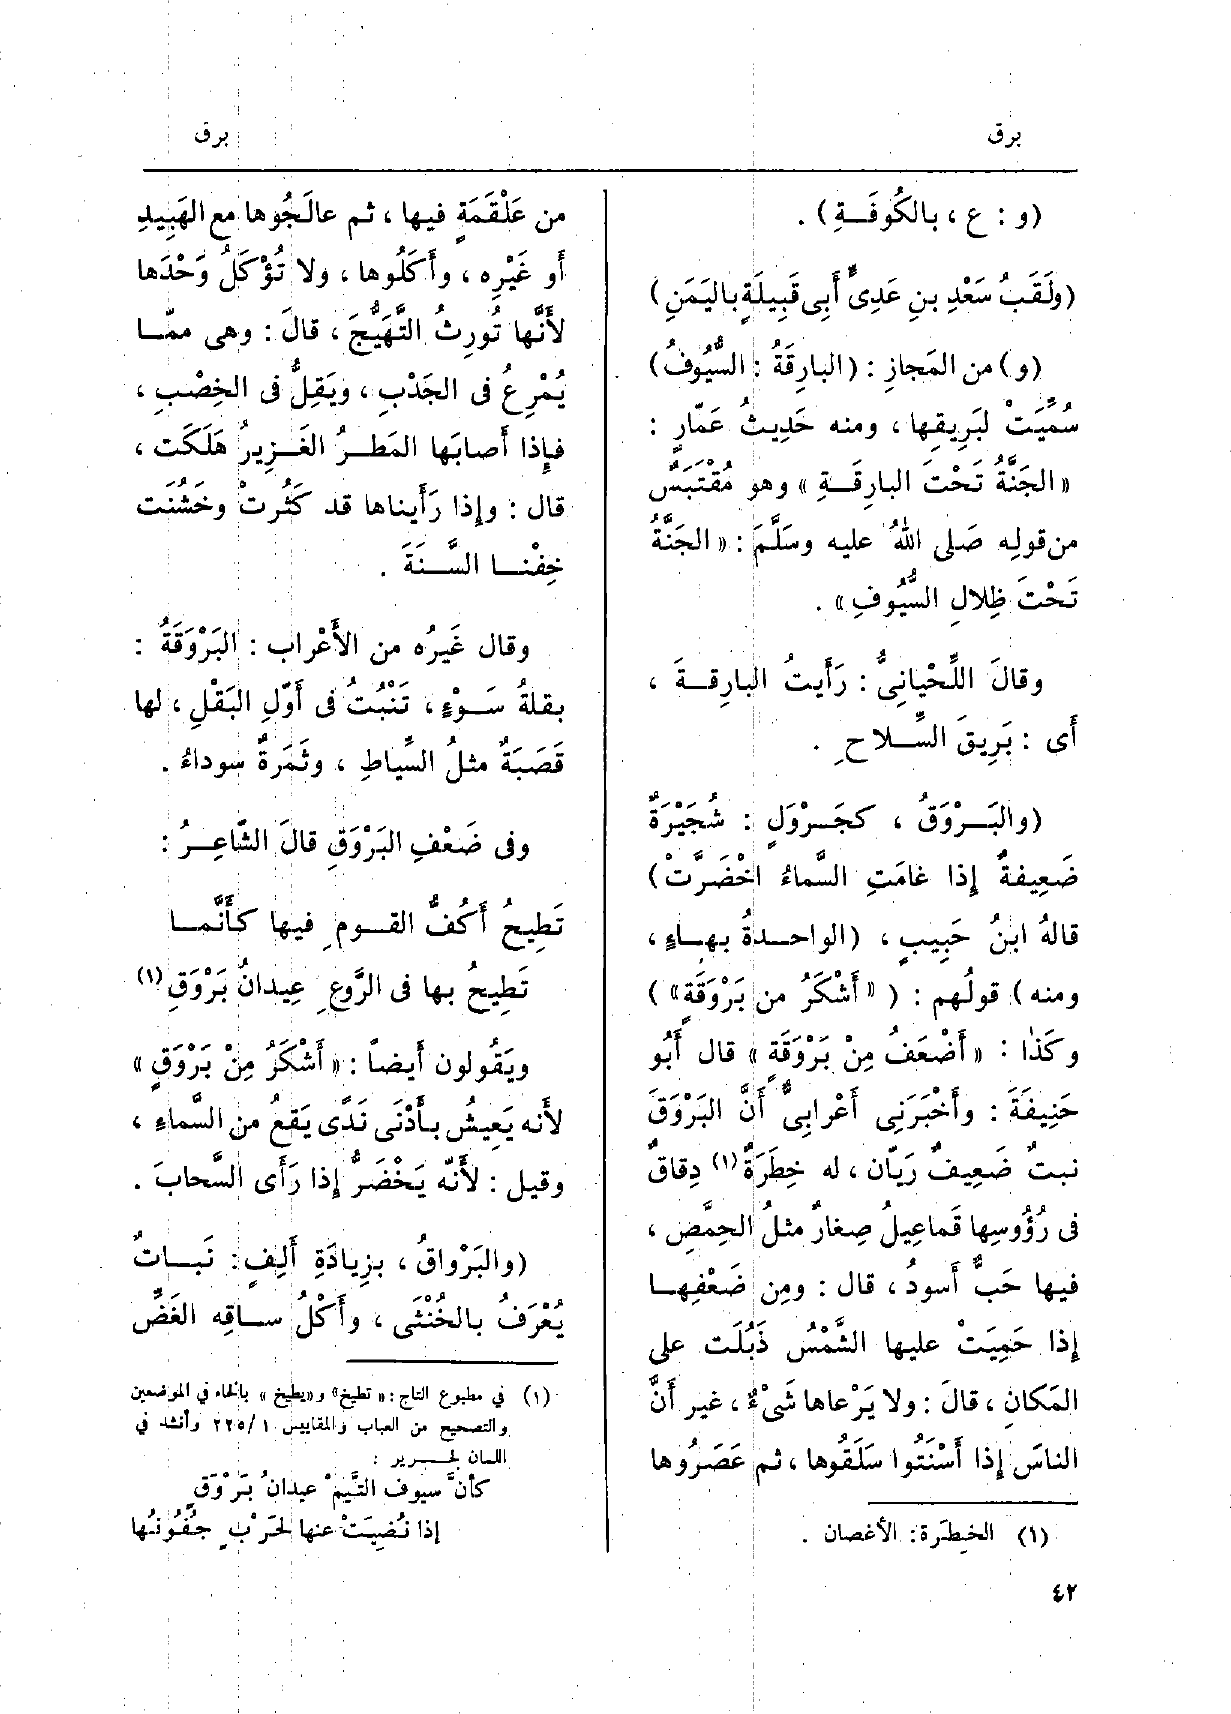 برق
برق
(و : ع ، بالكُوفَـةِ) .
(ولَقَبُ سَعْدِ بنِ عَدِىٍّ أَبِى قَبِيلَةٍ باليَمَنِ)
(و) من المَجازِ : (البارِقَةُ : السُّيُوفُ)
سُمِّيَتْ لبَرِيقِها ، ومنه حَدِيثُ عَمّارٍ :
«الجَنَّةُ تَحْتَ البارِقَـةِ» وهو مُقْتَبَسٌ
من قولِه صَلى اللهُ عليه وسَلَّمَ : «الجَنَّةُ
تَحْتَ ظِلالِ السُّيُوفِ» .
وقالَ اللِّحْيانِىُّ : رَأَيتُ البارِقـةَ ،
أَى : بَرِيقَ السِّـلاحِ .
(والبَـرْوَقُ ، كجَـرْوَلٍ : شُجَيْرَةٌ
ضَعِيفةٌ إِذا غامَتِ السَّماءُ اخْضَرَّتْ)
قالهُ ابنُ حَبِيبٍ ، (الواحـدةُ بهـاءٍ ،
ومنه) قولُهم : ( «أَشْكَرُ من بَرْوَقَةٍ» )
وكَذٰا : «أَضْعَفُ مِنْ بَرْوَقَةٍ» قال أَبُو
حَنِيفَةَ : وأَخْبَرَنِى أَعْرابِىٌّ أَنَّ البَرْوَقَ
نبتٌ ضَعِيفٌ رَيّان ، له خِطَرَةٌ (١) دِقاقٌ
فى رُؤُوسِها قَماعِيلُ صِغارٌ مثلُ الحِمَّصِ ،
فيها حَبٌّ أَسودُ ، قال : ومِن ضَعْفِهـا
إِذا حَمِيَتْ عليها الشَّمْسُ ذَبُلَت على
المَكانِ ، قالَ : ولا يَرْعاها شَىْءٌ ، غير أَنَّ
الناسَ إِذا أَسْنَتُوا سَلَقُوها ، ثم عَصَرُوها
(١) الخِطَرة : الأغصان .
٤٢
من عَلْقَمَةٍ فيها ، ثم عالَجُوها مع الهَبِيدِ
أَو غَيْرِه ، وأَكَلُوها ، ولا تُؤْكَلُ وَحْدَها
لأَنَّها تُورِثُ التَّهَيُّجَ ، قالَ : وهى ممّـا
يُمْرِعُ فى الجَدْبِ ، ويَقِلُّ فى الخِصْبِ ،
فإِذا أَصابَها المَطـرُ الغَـزِيرُ هَلَكَت ،
قال : وإِذا رَأَيناها قد كَثُرتْ وخَشُنَت
خِفْنـا السَّـنَةَ .
وقال غَيرُه من الأَعْراب : البَرْوَقَةُ :
بقلةُ سَـوْءٍ ، تَنْبُتُ فى أَوّلِ البَقْلِ ، لها
قَصَبَةٌ مثلُ السِّياطِ ، وثَمَرَةٌ سوداءُ .
وفى ضَعْفِ البَرْوَقِ قالَ الشّاعِـرُ :
تَطِيحُ أَكفُّ القـومِ فيها كأَنَّمـا
تَطِيحُ بها فى الرَّوعِ عِيدانُ بَرْوَقِ (١)
ويَقُولون أَيضاً : «أَشْكَرُ مِنْ بَرْوَقٍ»
لأَنه يَعِيشُ بأَدْنَى نَدًى يَقَعُ من السَّماءِ ،
وقيل : لأَنّه يَخْضَرُّ إِذا رَأَى السَّحابَ .
(والبَرْواقُ ، بزِيادَةِ أَلِفٍ : نَبـاتٌ
يُعْرَفُ بالخُنْثَى ، وأَكْلُ سـاقِه الغَضِّ
(١) في مطبوع التاج : «تطيخ» و«يطيخ» بالخاء في الموضعين
والتصحيح من العباب والمقاييس ١ /٢٢٥ وأنشد في
اللسان لجـرير :
كأنّ سيوف التَّيمْ عيدانُ بَرْوَقٍ
إذا نُضِيَتْ عنها لحَرْبٍ جُفُونُها